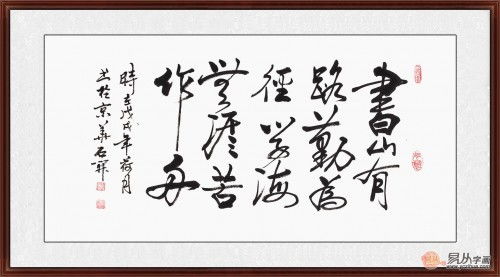 書山有
路勤為
徑学海
無涯苦
作舟
時在戊戌年荷月
书於京華石
易从字画
www.yczihua.com